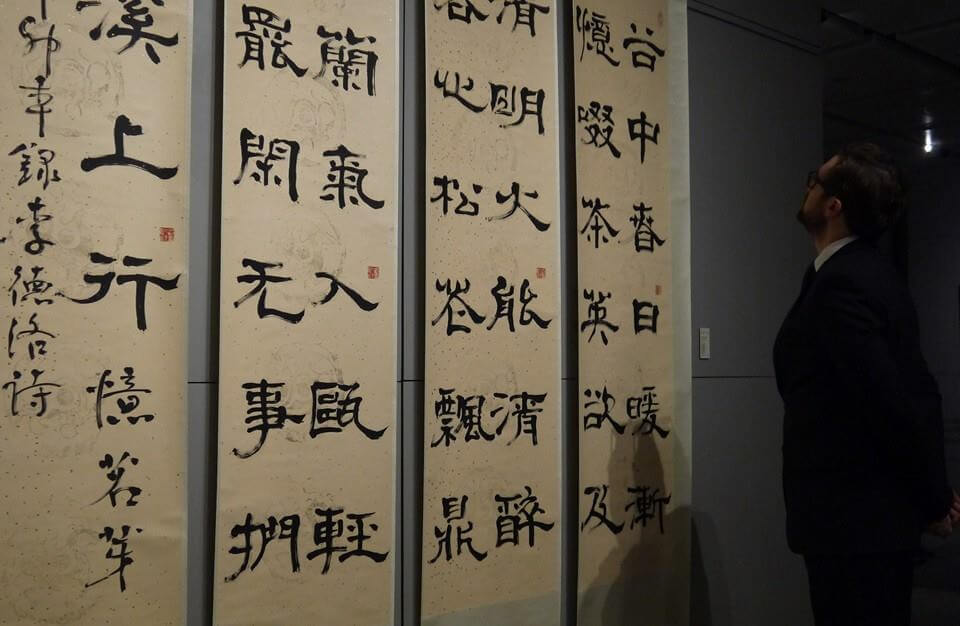 谷中春日暖漸
憶啜茶英欲及
清明火能消醉
客心松花飄鼎
蘭氣入甌輕
罷閑无事捫
溪上行憶茗芽
卯年錄李德裕詩